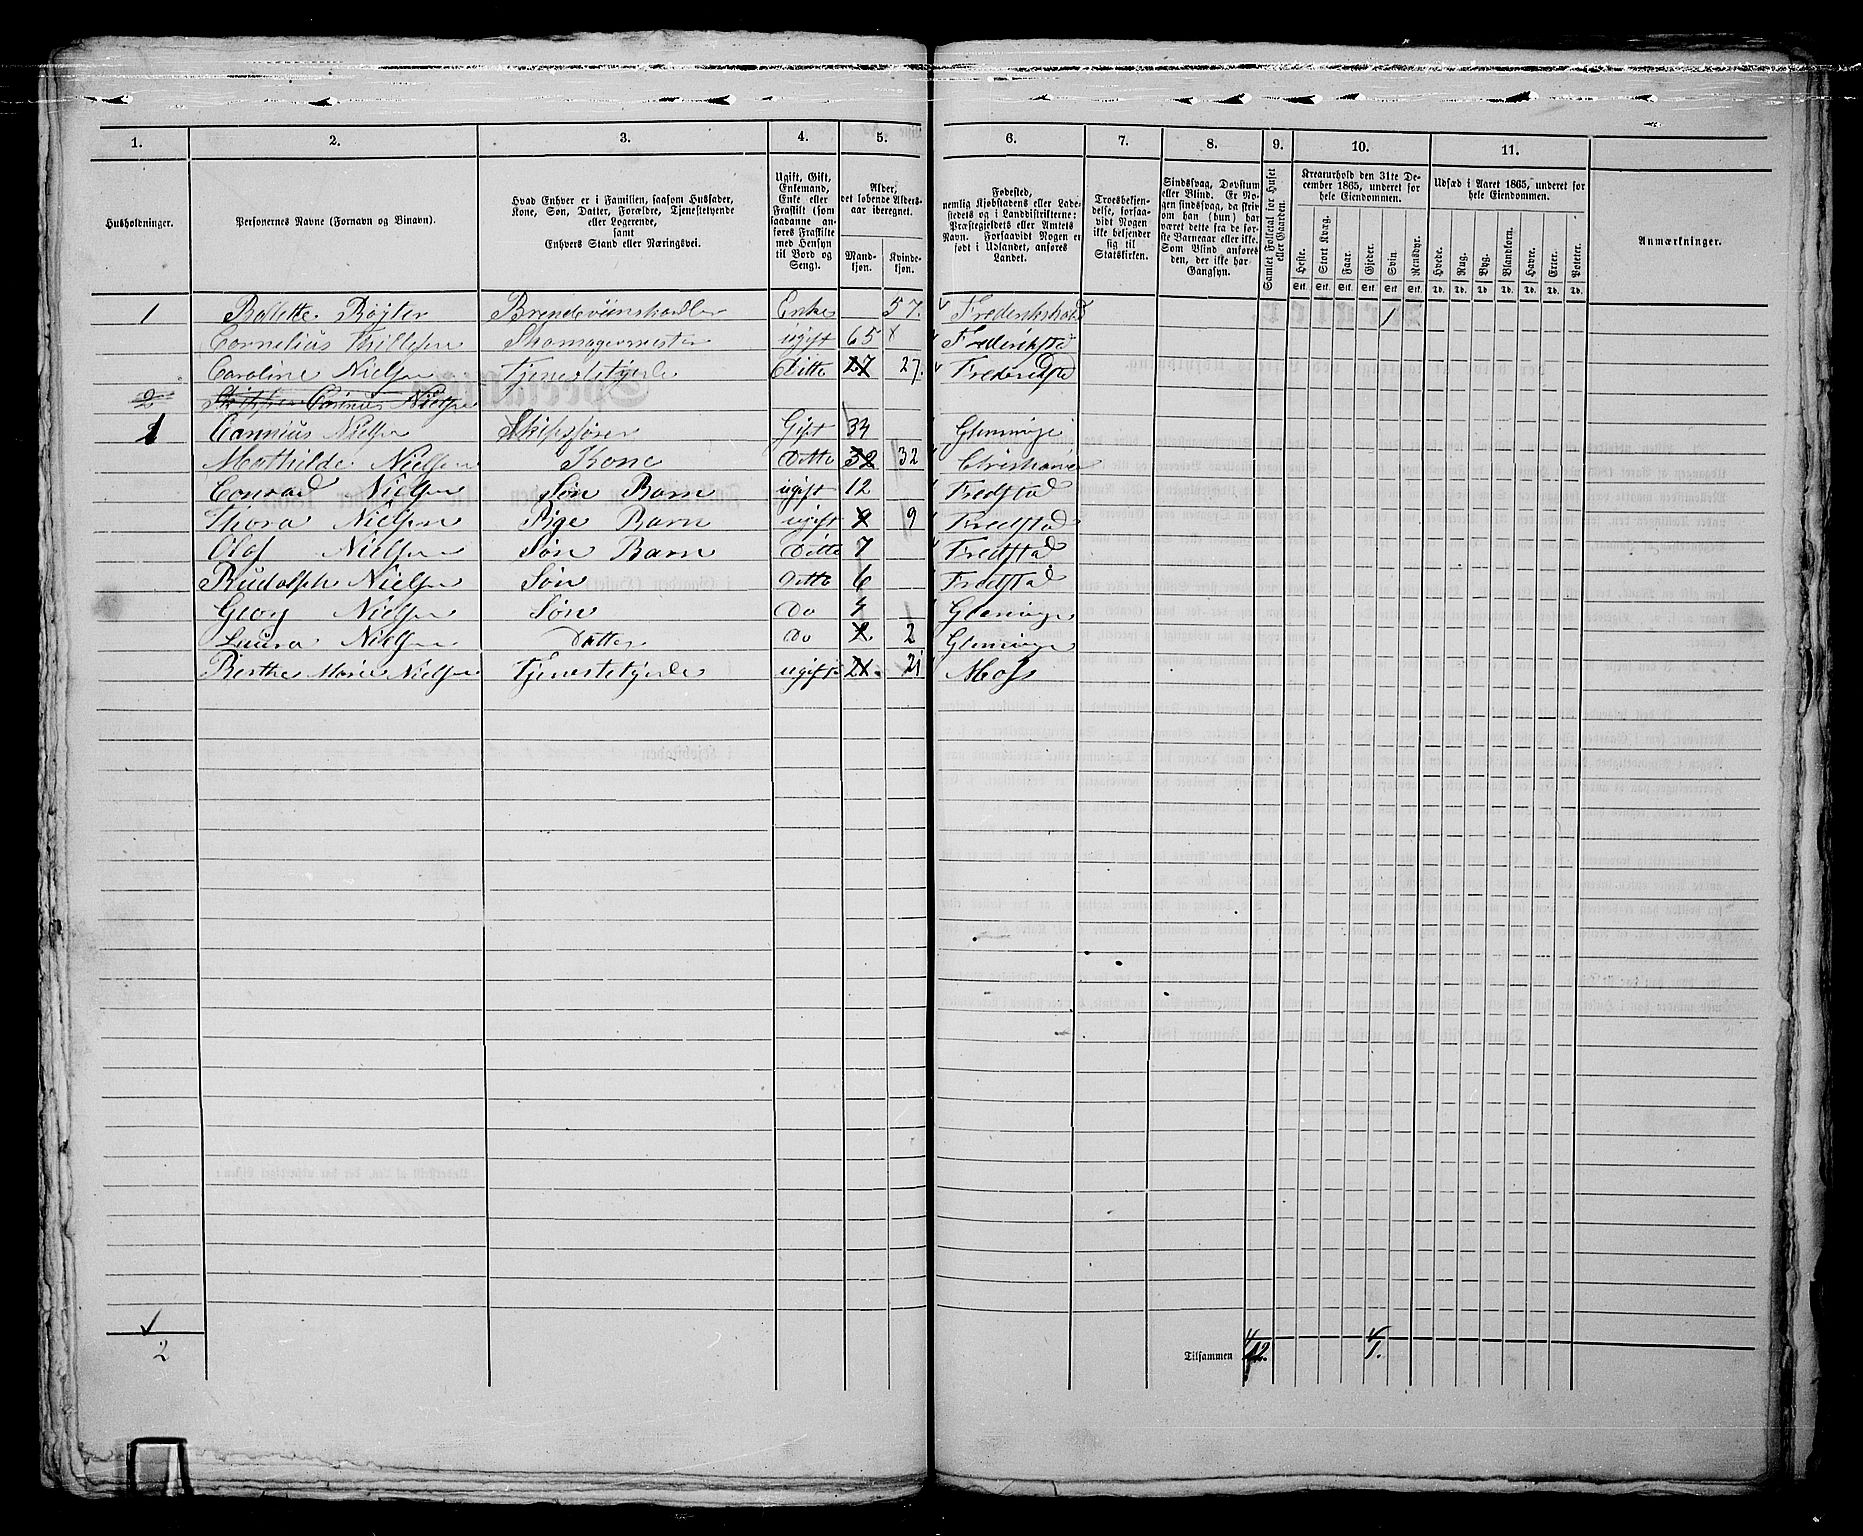 1. 2. 3. 4. 5. 6. 7. 8. 9. 10. 11.
Husholdninger.
Personernes Navne (Fornavn og Binavn).
Hvad Enhver er i Familien, saasom Husfader,
Kone, Søn, Datter, Forældre, Tjenestetyende
eller Logerende,
samt
Enhvers Stand eller Næringsvei.
Ugift, Gift,
Enkemand,
Enke eller
Fraskilt (som
saadanne an-
føres Fraskilte
med Hensyn
til Bord og
Seng).
Alder,
det løbende Alders-
aar iberegnet.
Mand-
kjøn.
Kvinde-
kjøn.
Fødested,
nemlig Kjøbstadens eller Lade-
stedets og i Landdistrikterne:
Præstegjeldets eller Amtets
Navn. Forsaavidt Nogen er
født i Udlandet, anføres
Landet.
Troesbekjen-
delse, forsaa-
vidt Nogen
ikke bekjender
sig til
Statskirken.
Sindssvag, Døvstum
eller Blind. Er No-
gen sindssvag, da skriv
om han (hun) har
været dette fra de før-
ste Barneaar eller ikke.
Som Blind anføres
den, der ikke har
Gangsyn.
Samlet Folketal for Huset
eller Gaarden.
Kreaturhold den 31te De-
cember 1865, underet for
hele Eiendommen.
Heste. Stort Kvæg. Faar. Gjeder. Svin. Rensdyr.
Stk. Stk. Stk. Stk. Stk. Stk.
Udsæd i Aaret 1865, underet for
hele Eiendommen.
Hvede. Rug. Byg. Blandkorn. Havre. Erter. Poteter.
Td. Td. Td. Td. Td. Td. Td.
Anmærkninger.
1 Enke 57. Frederikstad 1
Cornelius ugift 65 Frederikstad
Caroline Nielsen Tjenestetyende Ditto 27 27. Frederikstad
2 Nielsen
Nielsen Skibsfører Gift 34 Glemminge
Mathilde Nielsen Kone Ditto 32 32 Christiania
Conrad Nielsen Søn Barn ugift 12 Fredstad
Thora Nielsen Pige Barn ugift 9 9 Fredstad
Olaf Nielsen Søn Barn Ditto 7 Fredstad
Rudolph Nielsen Søn Ditto 6 Fredstad
Georg Nielsen Søn Do 4 Glemminge
Laura Nielsen Datter Do 2 2 Glemminge
Berthe Marie Nielsen Tjenestetyende ugift 21. 21 Moss
2
Tilsammen 12. 1.